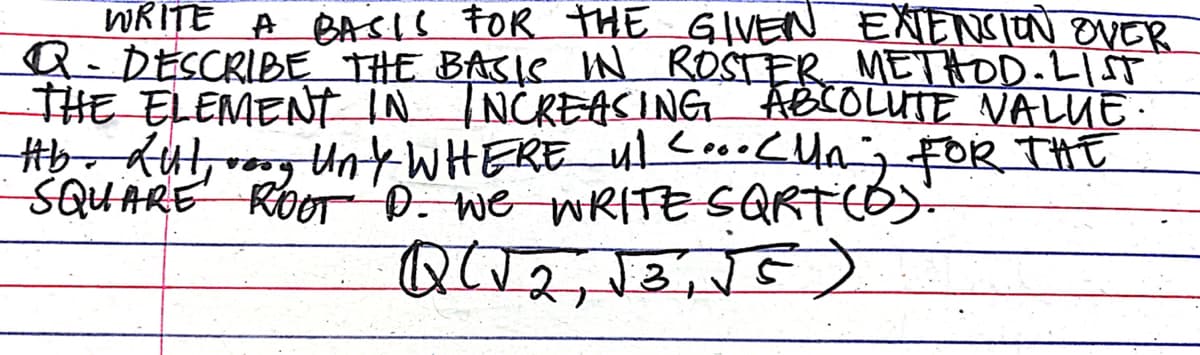 WRITE A BASIS FOR THE GIVEN EXTENSION OVER
Q - DESCRIBE THE BASIS IN ROSTER METHOD. LIST
THE ELEMENT IN INCREASING ABSOLUTE VALUE.
Hb. {u1, ...., Un} WHERE u1 <...< Un; FOR THE
SQUARE ROOT D. We WRITE SQRT(D).
Q(√2, √3, √5)